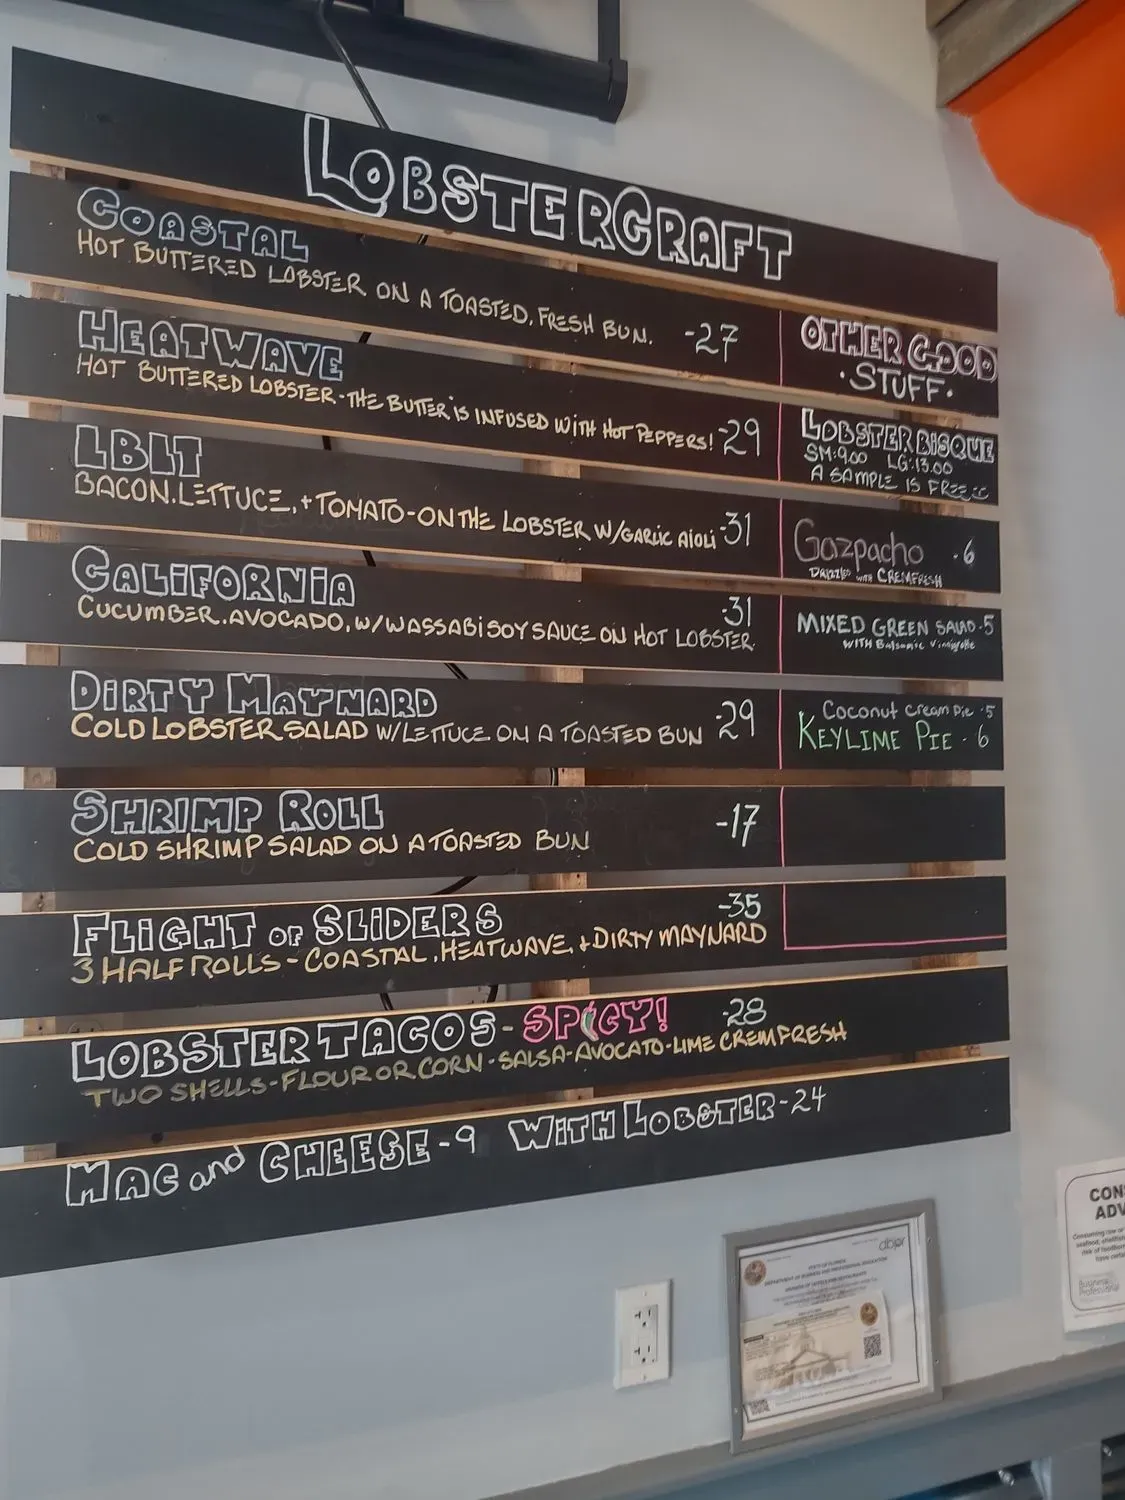 LOBSTERCRAFT
COASTAL
HOT BUTTERED LOBSTER ON A TOASTED, FRESH BUN. -27
HEATWAVE
HOT BUTTERED LOBSTER-THE BUTTER IS INFUSED WITH HOT PEPPERS! -29
LBLT
BACON, LETTUCE, + TOMATO-ON THE LOBSTER W/GARLIC AIOLI -31
CALIFORNIA -31
CUCUMBER, AVOCADO, W/WASSABI SOY SAUCE ON HOT LOBSTER.
DIRTY MAYNARD
COLD LOBSTER SALAD W/LETTUCE ON A TOASTED BUN -29
SHRIMP ROLL -17
COLD SHRIMP SALAD ON A TOASTED BUN
FLIGHT OF SLIDERS -35
3 HALF ROLLS-COASTAL, HEATWAVE, + DIRTY MAYNARD
LOBSTER TACOS-SPICY! -28
TWO SHELLS-FLOUR OR CORN-SALSA-AVOCATO-LIME CREMFRESH
MAC and CHEESE-9 WITH LOBSTER-24
OTHER GOOD
·STUFF·
LOBSTER BISQUE
SM:9.00 LG:13.00
A SAMPLE IS FREE
Gazpacho ·6
DRIZZLED WITH CREMFRESH
MIXED GREEN SALAD·5
WITH Balsamic Vinnigrette
Coconut Cream Pie ·5
KEYLIME PIE · 6
dbpr
STATE OF FLORIDA
DEPARTMENT OF BUSINESS AND PROFESSIONAL REGULATION
DIVISION OF HOTELS AND RESTAURANTS
CON
ADV
Consuming raw or
seafood, shellfish
risk of foodborn
have certai
Business
Professional